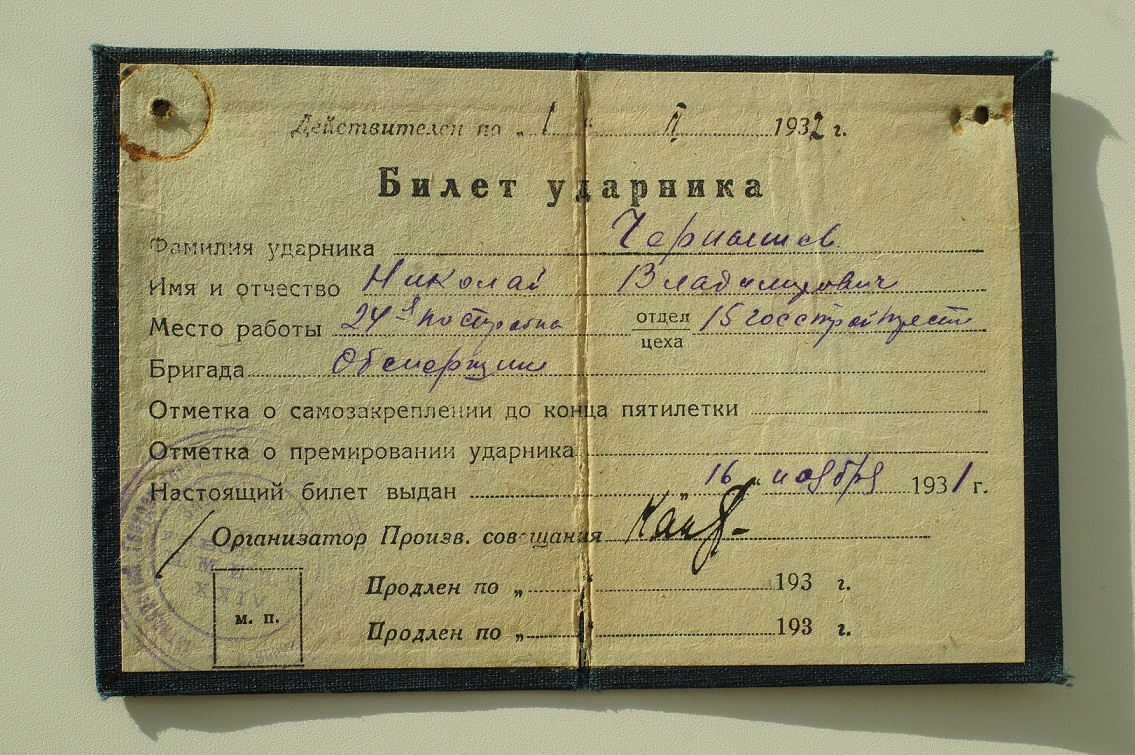 Действителен по „ 1 " II 1932 г.
Билет ударника
Фамилия ударника Чернышев
Имя и отчество Николай Владимирович
Место работы 24я постройка отдел цеха 15 госстройтрест
Бригада
Отметка о самозакреплении до конца пятилетки
Отметка о премировании ударника
Настоящий билет выдан „ 16 " ноября 1931 г.
Организатор Произв. совещания
Продлен по „ 193 г.
м. п.
Продлен по „ 193 г.
XXIV